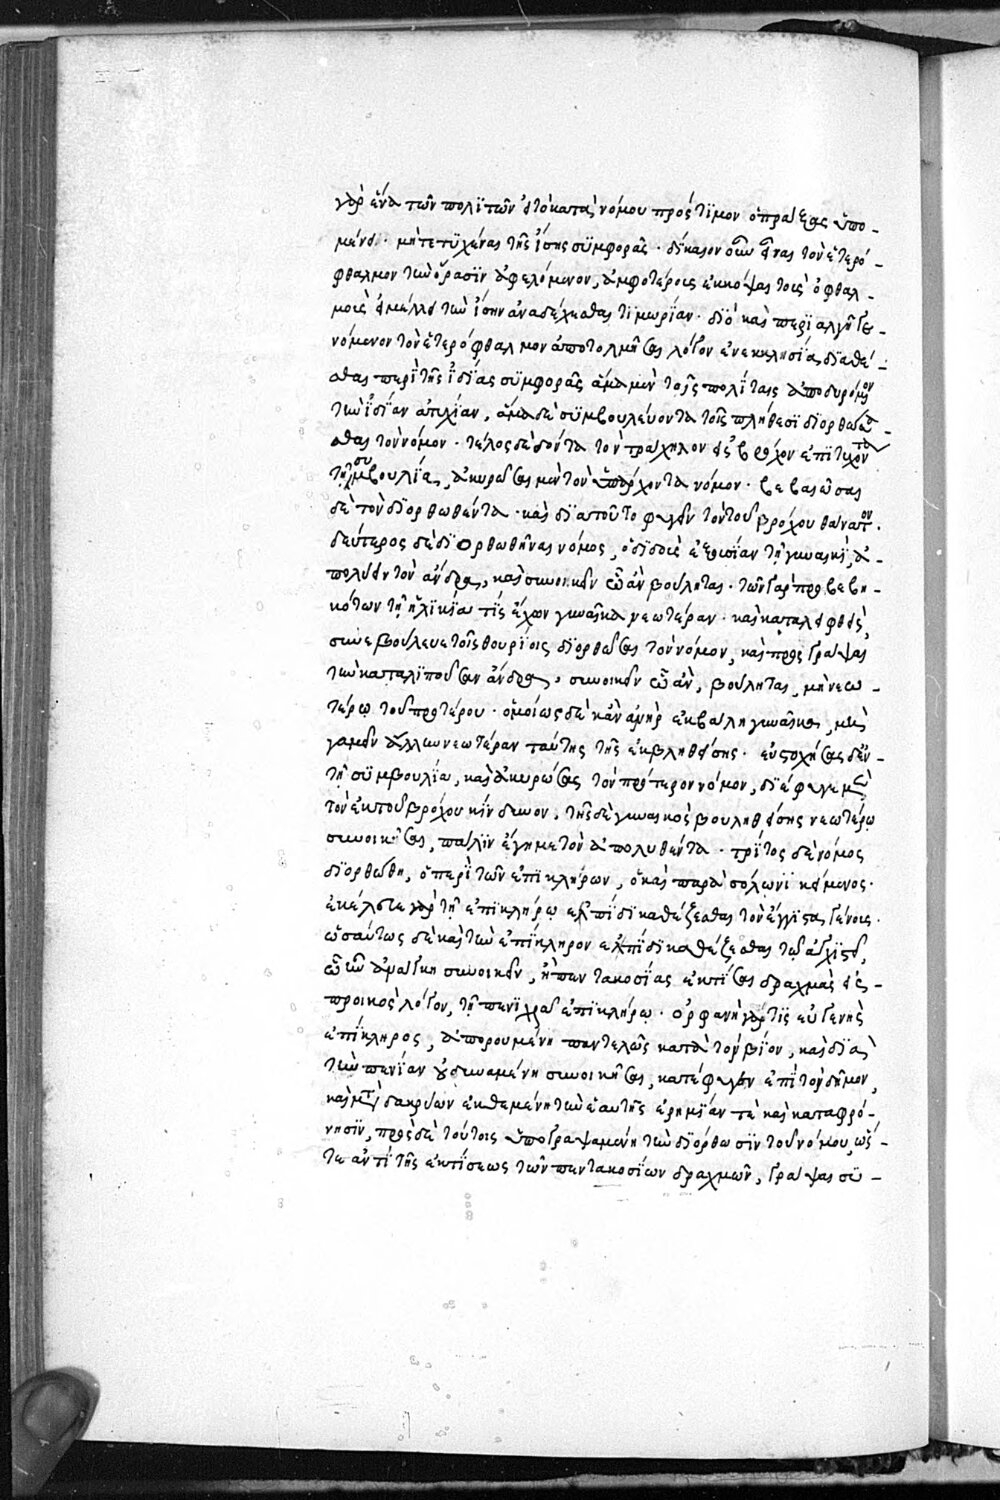 γὰρ ἕνα τῶν πολϊτῶν εἰ τὸ κατὰ νόμου πρόςτϊμον ὁ πράξας ὑπο-
μένει. μὴ τετϋχέναι τῆς ἴσης σϋμφορᾶς. δίκαιον οὖν εἶναι τὸν ἑτερό-
φθαλμον τὴν ὅρασϊν ἀφελόμενον, ἀμφοτέρους ἐκκόψας τοὺς ὀφθαλ-
μοὺς εἰ μέλλει τὴν ἴσην ἀναδέχεσθαι τϊμωρίαν. δϊὸ καὶ περϊαλγῆ γε-
νόμενον τὸν ἑτερόφθαλμον ἀποτολμῆσαι λόγον ἐν ἐκκλησία διαθέ-
σθαι περὶ τῆς ἰδίας σϋμφορᾶς ἅμα μὲν τοῖς πολίταις ἀποδυρόμενον
τὴν ἰδίαν ἀτυχίαν, ἅμα δὲ σϋμβουλεύοντα τοῖς πλήθεσϊ δϊορθώσα-
σθαι τὸν νόμον. τέλος δὲ δόντα τὸν τράχηλον εἰς βρόχον ἐπϊτυχόντα
τῇ συμβουλία, ἀκυρῶσαι μὲν τὸν ὑπάρχοντα νόμον. βεβαιῶσαι
δὲ τὸν δϊορθωθέντα. καὶ δϊατοῦτο φυγεῖν τὸν τοῦ βρόχου θάνατον.
δεύτερος δὲ δϊορθωθῆναι νόμος, ὁ δϊδοὺς ἐξουσίαν τῇ γυναικὶ, ἀ-
πολύειν τὸν ἄνδρα, καὶ συνοικεῖν ᾧ ἂν βούληται. τῶν γὰρ προβεβη-
κότων τῇ ἡλϊκία τὶς ἔχων γυναῖκα νεωτέραν. καὶ καταλειφθεὶς,
συνεβούλευε τοῖς θουρίοις δϊορθῶσαι τὸν νόμον, καὶ προςγράψαι
τὴν καταλϊποῦσαν ἄνδρα, συνοικεῖν ᾧ ἂν, βούληται, μὴ νεω-
τέρῳ τοῦ προτέρου. ὁμοίως δὲ κἂν ἀνὴρ ἐκβάλη γυναῖκα, μὴ
γαμεῖν ἄλλην νεωτέραν ταύτης τῆς ἐκβληθείσης. εὐστοχήσας δ' ἐν
τῇ σϋμβουλία, καὶ ἀκυρώσας τὸν πρότερον νόμον, διέφυγε μὲν
τὸν ἐκ τοῦ βρόχου κίνδυνον, τῆς δὲ γυναικὸς βουληθείσης νεωτέρῳ
συνοικῆσαι, πάλϊν ἔγημε τὸν ἀπολυθέντα. τρίτος δὲ νόμος
δϊορθώθη, ὁ περὶ τῶν ἐπϊκλήρων, ὁ καὶ παρὰ σόλωνϊ κείμενος.
ἐκέλευε γὰρ τῇ ἐπϊκλήρῳ ἐπϊδϊκαθέζεσθαι τὸν ἔγγϊστα γένους.
ὡσαύτως δὲ καὶ τὴν ἐπίκληρον ἐπϊδϊκαθέζεσθαι τῷ ἀγχϊστεῖ,
ᾧ ἦν ἀνάγκη συνοικεῖν, ἢ πεντακοσίας ἐκτῖσαι δραχμὰς εἰς
προικὸς λόγον, τῇ πενϊχρᾷ ἐπϊκλήρῳ. ὀρφανὴ γάρ τις εὐγενὴς
ἐπίκληρος, ἀπορουμένη παντελῶς κατὰ τὸν βίον, καὶ δϊὰ
τὴν πενίαν οὐ δυναμένη συνοικῆσαι, κατέφυγεν ἐπὶ τὸν δῆμον,
καὶ μετὰ δακρύων ἐκθεμένη τὴν ἑαυτῆς ἐρημίαν τὲ καὶ καταφρό-
νησϊν, πρὸς δὲ τούτοις ὑπογραψαμένη τὴν δϊόρθωσϊν τοῦ νόμου, ὥς-
τε ἀντὶ τῆς ἐκτίσεως τῶν πεντακοσίων δραχμῶν, γράψαι σϋ-